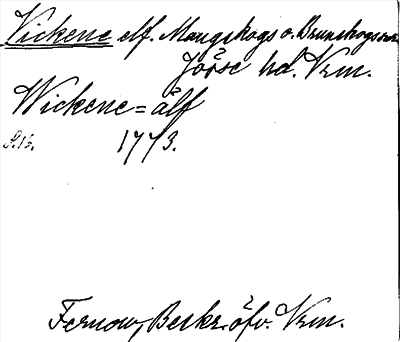 Vickene elf. Mangskogs o. Brunskogs snr
Jösse hd. Vrm.
Wickene=älf
S.13. 1773.
Fernow, Beskr. öfv. Vrm.